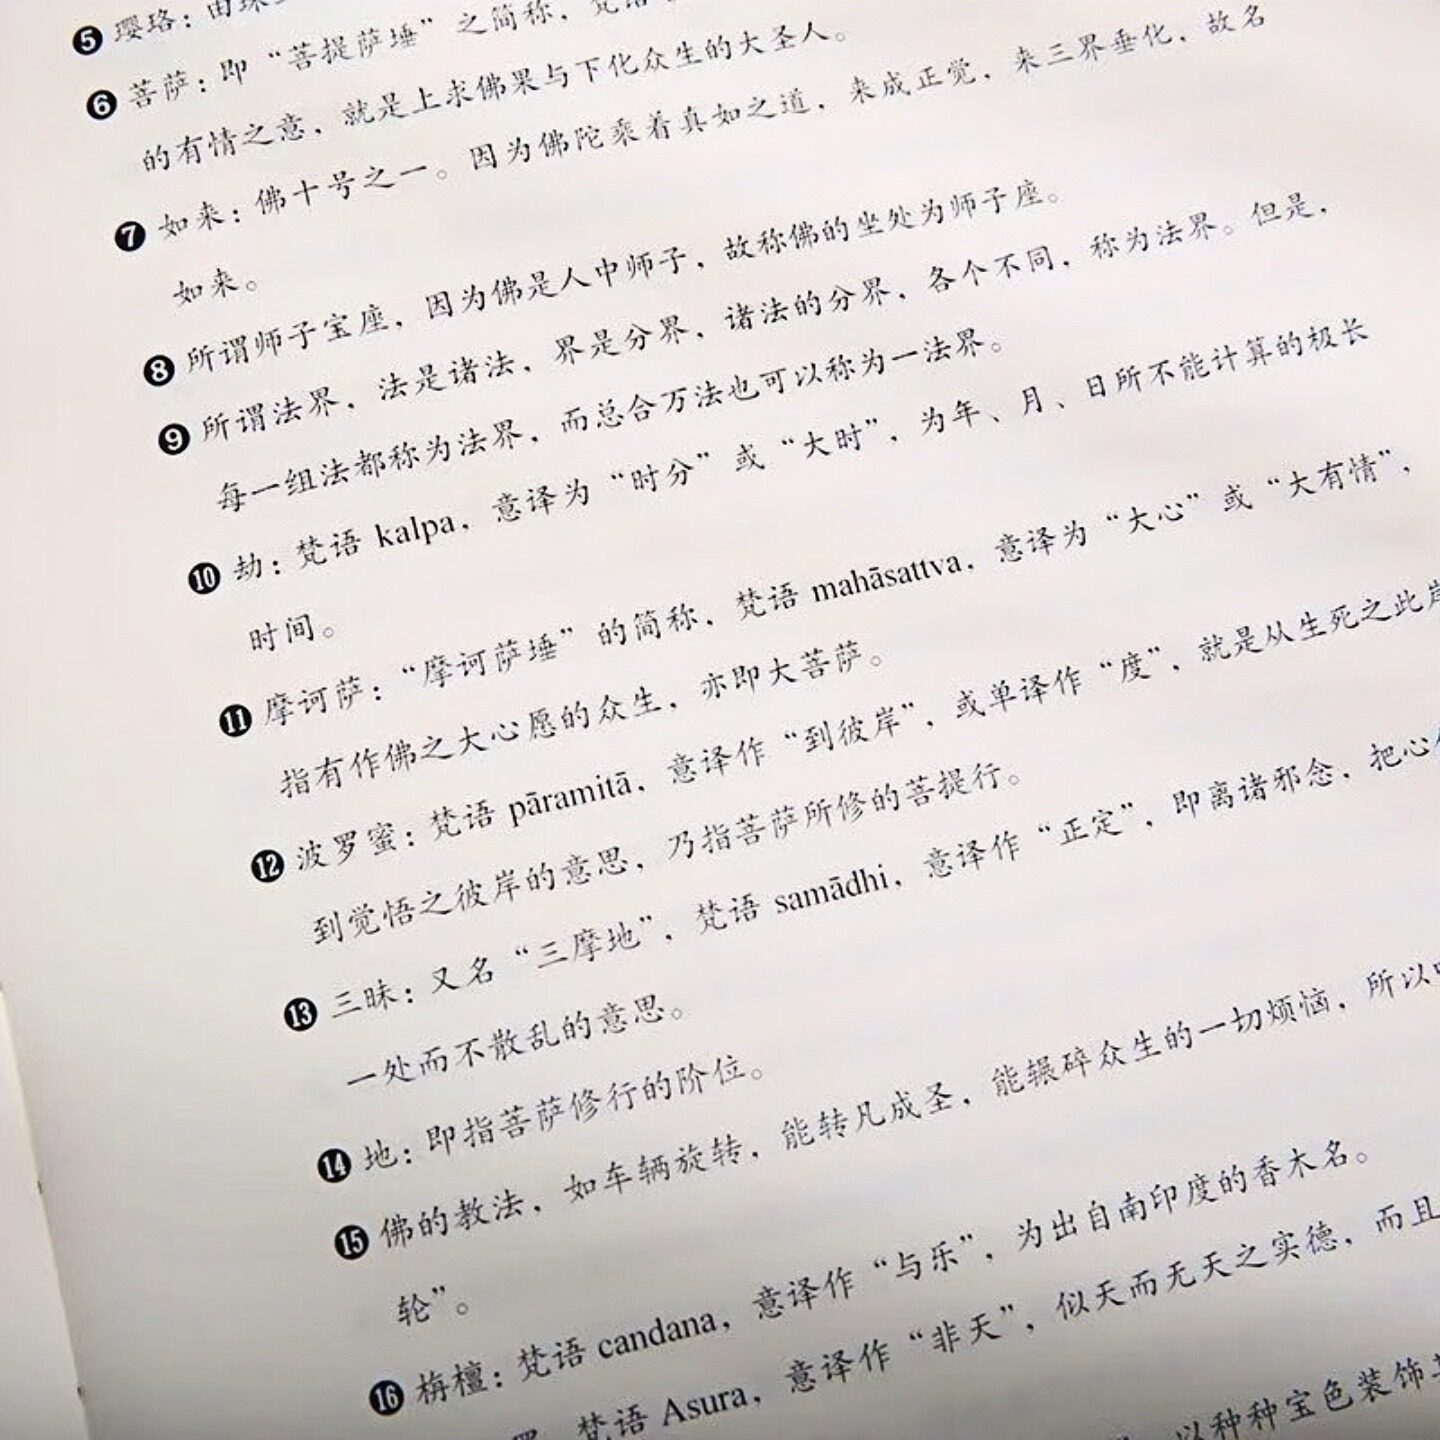 ❺ 璎珞：由珠
❻ 菩萨：即“菩提萨埵”之简称，梵语
的有情之意，就是上求佛果与下化众生的大圣人。
❼ 如来：佛十号之一。因为佛陀乘着真如之道，来成正觉，来三界垂化，故名
如来。
❽ 所谓师子宝座，因为佛是人中师子，故称佛的坐处为师子座。
❾ 所谓法界，法是诸法，界是分界，诸法的分界，各个不同，称为法界。但是，
每一组法都称为法界，而总合万法也可以称为一法界。
❿ 劫：梵语 kalpa，意译为“时分”或“大时”，为年、月、日所不能计算的极长
时间。
⓫ 摩诃萨：“摩诃萨埵”的简称，梵语 mahāsattva，意译为“大心”或“大有情”，
指有作佛之大心愿的众生，亦即大菩萨。
⓬ 波罗蜜：梵语 pāramitā，意译作“到彼岸”，或单译作“度”，就是从生死之此岸
到觉悟之彼岸的意思，乃指菩萨所修的菩提行。
⓭ 三昧：又名“三摩地”，梵语 samādhi，意译作“正定”，即离诸邪念，把心
一处而不散乱的意思。
⓮ 地：即指菩萨修行的阶位。
⓯ 佛的教法，如车辆旋转，能转凡成圣，能辗碎众生的一切烦恼，所以
轮”。
⓰ 栴檀：梵语 candana，意译作“与乐”，为出自南印度的香木名。
梵语 Asura，意译作“非天”，似天而无天之实德，而且
以种种宝色装饰